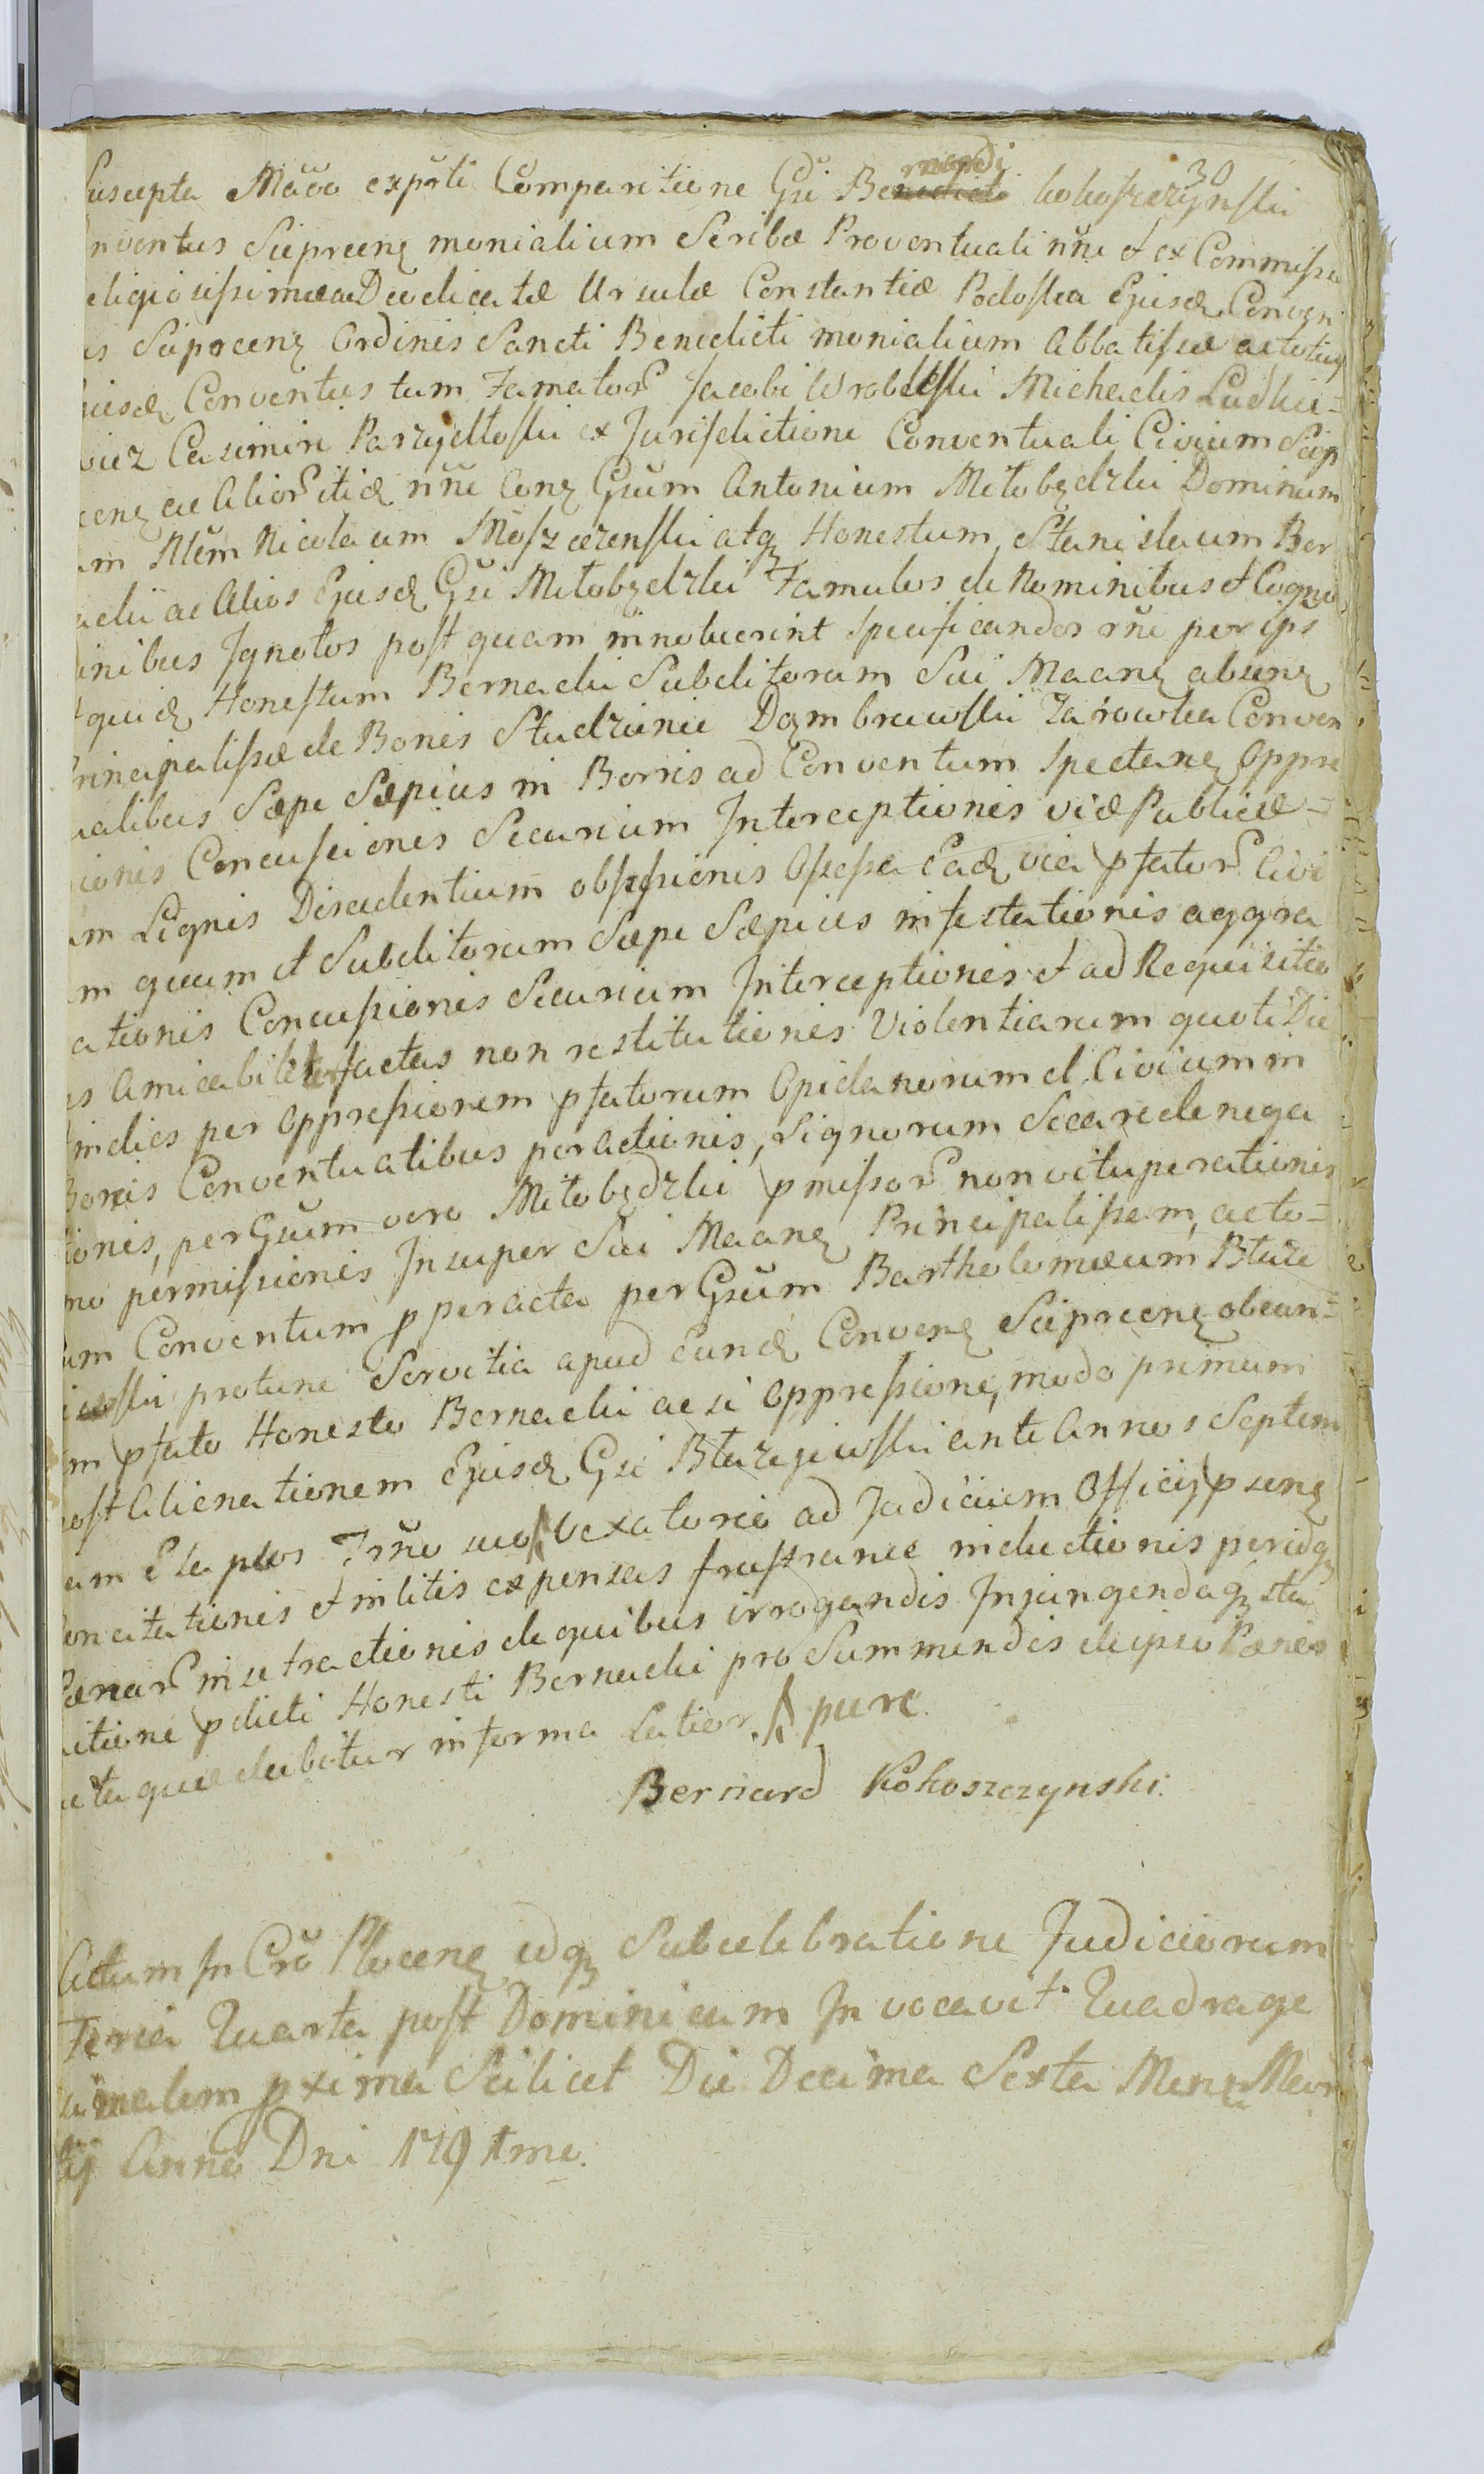 30
Suscepta Mãõo expũti Comparitione Gsi Benedicti rnardi Kokoszczynski
nventus Sieprcenς monialium Scribæ Proventuali nñe et ex Commissa
eligiosissimæ a Deo dicatæ Ursulæ Constantiæ Podoska Ejusdς Conven
s Sieprcenς Ordinis Sancti Benedicti monialium Abbatissæ ac totius
iusdς Conventus tum Famator Jacobi Wroblewski Michaelis Ludkie-
wicz Casimiri Parzydłoski ex Jurisdictione Conventuali Civium Siep
cenς ac Alior itidς nñe Conς Gsum Antonium Miłobędzki Dominum
um Nlem Nicolaum Moszczenski atqς Honestum Stanislaum Ber
nacki ac Alios Ejusdς Gsi Miłobędzki Famulos de Nominibus et Cogno
inibus Ignotos post quam innotuerint specificandos rñe per ips
t quidς Honestum Bernacki Subditorum Sui Maanς absenς
Principalissæ de Bonis Studzinie Dąmbrowski Zarowka Conven
ualibus Sæpe Sæpius in Bonis ad Conventum spectanς Oppre
ionis Concussionis Securium Interceptionis viæ Publicæ=
um Lignis Discedentium obsessionis Obsessa Eadς via pfator Civi
m quum et Subditorum Sæpe Sæpius infestationis aggra
ationis Concussionis Securium Interceptionis et ad Requisitio
es Amicabiliter factas non restitutionis Violentiarum quoti Die
indies per Oppressionem pfatorum Opidanorum et Civium in
Bonis Conventualibus peractionis, Lignorum Secare denega
ionis, per Gsum vero Miłobędzki pmissor non vituperationis
mo permissionis Insuper Sui Maanς Principalissam, ac to=
um Conventum p peracta per Gsum Bartholomæum Błaże
iewski protunc Servitia apud Eundς Convenς Sieprcenς obeun=
m pfato Honesto Bernacki ac si Oppressione, modo primum
post Alienationem Ejusdς Gsi Błażejewski ante Annos Septem
am Elapsos Trño suo Vexatorio ad Judicium Officij psenς
oncitationis et in litis expensas frustranee inductionis peridqς
Pænar in se tractionis de quibus irrogandis Injungendaqς sta
itione pdicti Honesti Bernacki pro Summendis de ipso Pænis
cta quæ dabitur in forma Latior. pure.
Bernard Kokoszczynski.
Actum In Crõ Plocenς idqς Sub celebratione Judiciorum
Feria Quarta post Dominicam Invocavit Quadrage
simalem pxima Scilicet Die Decima Sexta Mensς Mar
tij Anno Dni 1791mo.